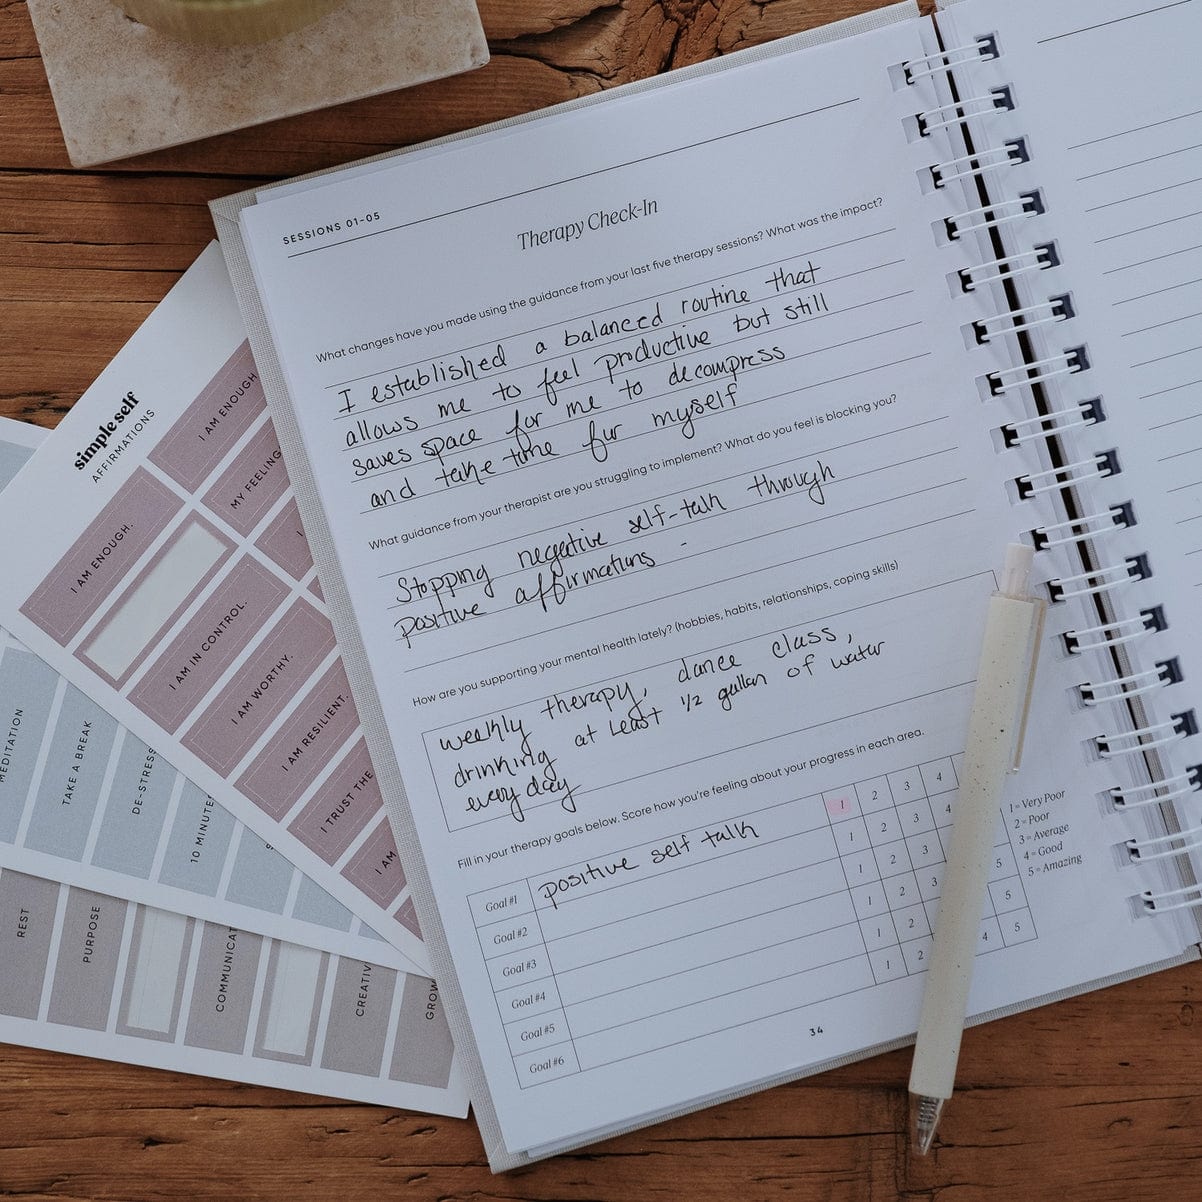 SESSIONS 01-05
Therapy Check-In
What changes have you made using the guidance from your last five therapy sessions? What was the impact?
I established a balanced routine that
allows me to feel productive but still
saves space for me to decompress
and take time for myself
What guidance from your therapist are you struggling to implement? What do you feel is blocking you?
Stopping negative self-talk through
positive affirmations -
How are you supporting your mental health lately? (hobbies, habits, relationships, coping skills)
weekly therapy, dance class,
drinking at least 1/2 gallon of water
every day
Fill in your therapy goals below. Score how you're feeling about your progress in each area.
Goal #1 positive self talk 1 2 3 4
Goal #2 1 2 3 4
Goal #3 1 2 3 5
Goal #4 1 2 3 5
Goal #5 1 2 5
Goal #6 1 2 4 5
1 = Very Poor
2 = Poor
3 = Average
4 = Good
5 = Amazing
34
simple self
AFFIRMATIONS
I AM ENOUGH
MY FEELING
I
I AM ENOUGH.
I AM IN CONTROL.
I AM WORTHY.
I AM RESILIENT.
I TRUST THE
I AM
MEDITATION
TAKE A BREAK
DE-STRESS
10 MINUTE
REST
PURPOSE
COMMUNICAT
CREATIV
GROW